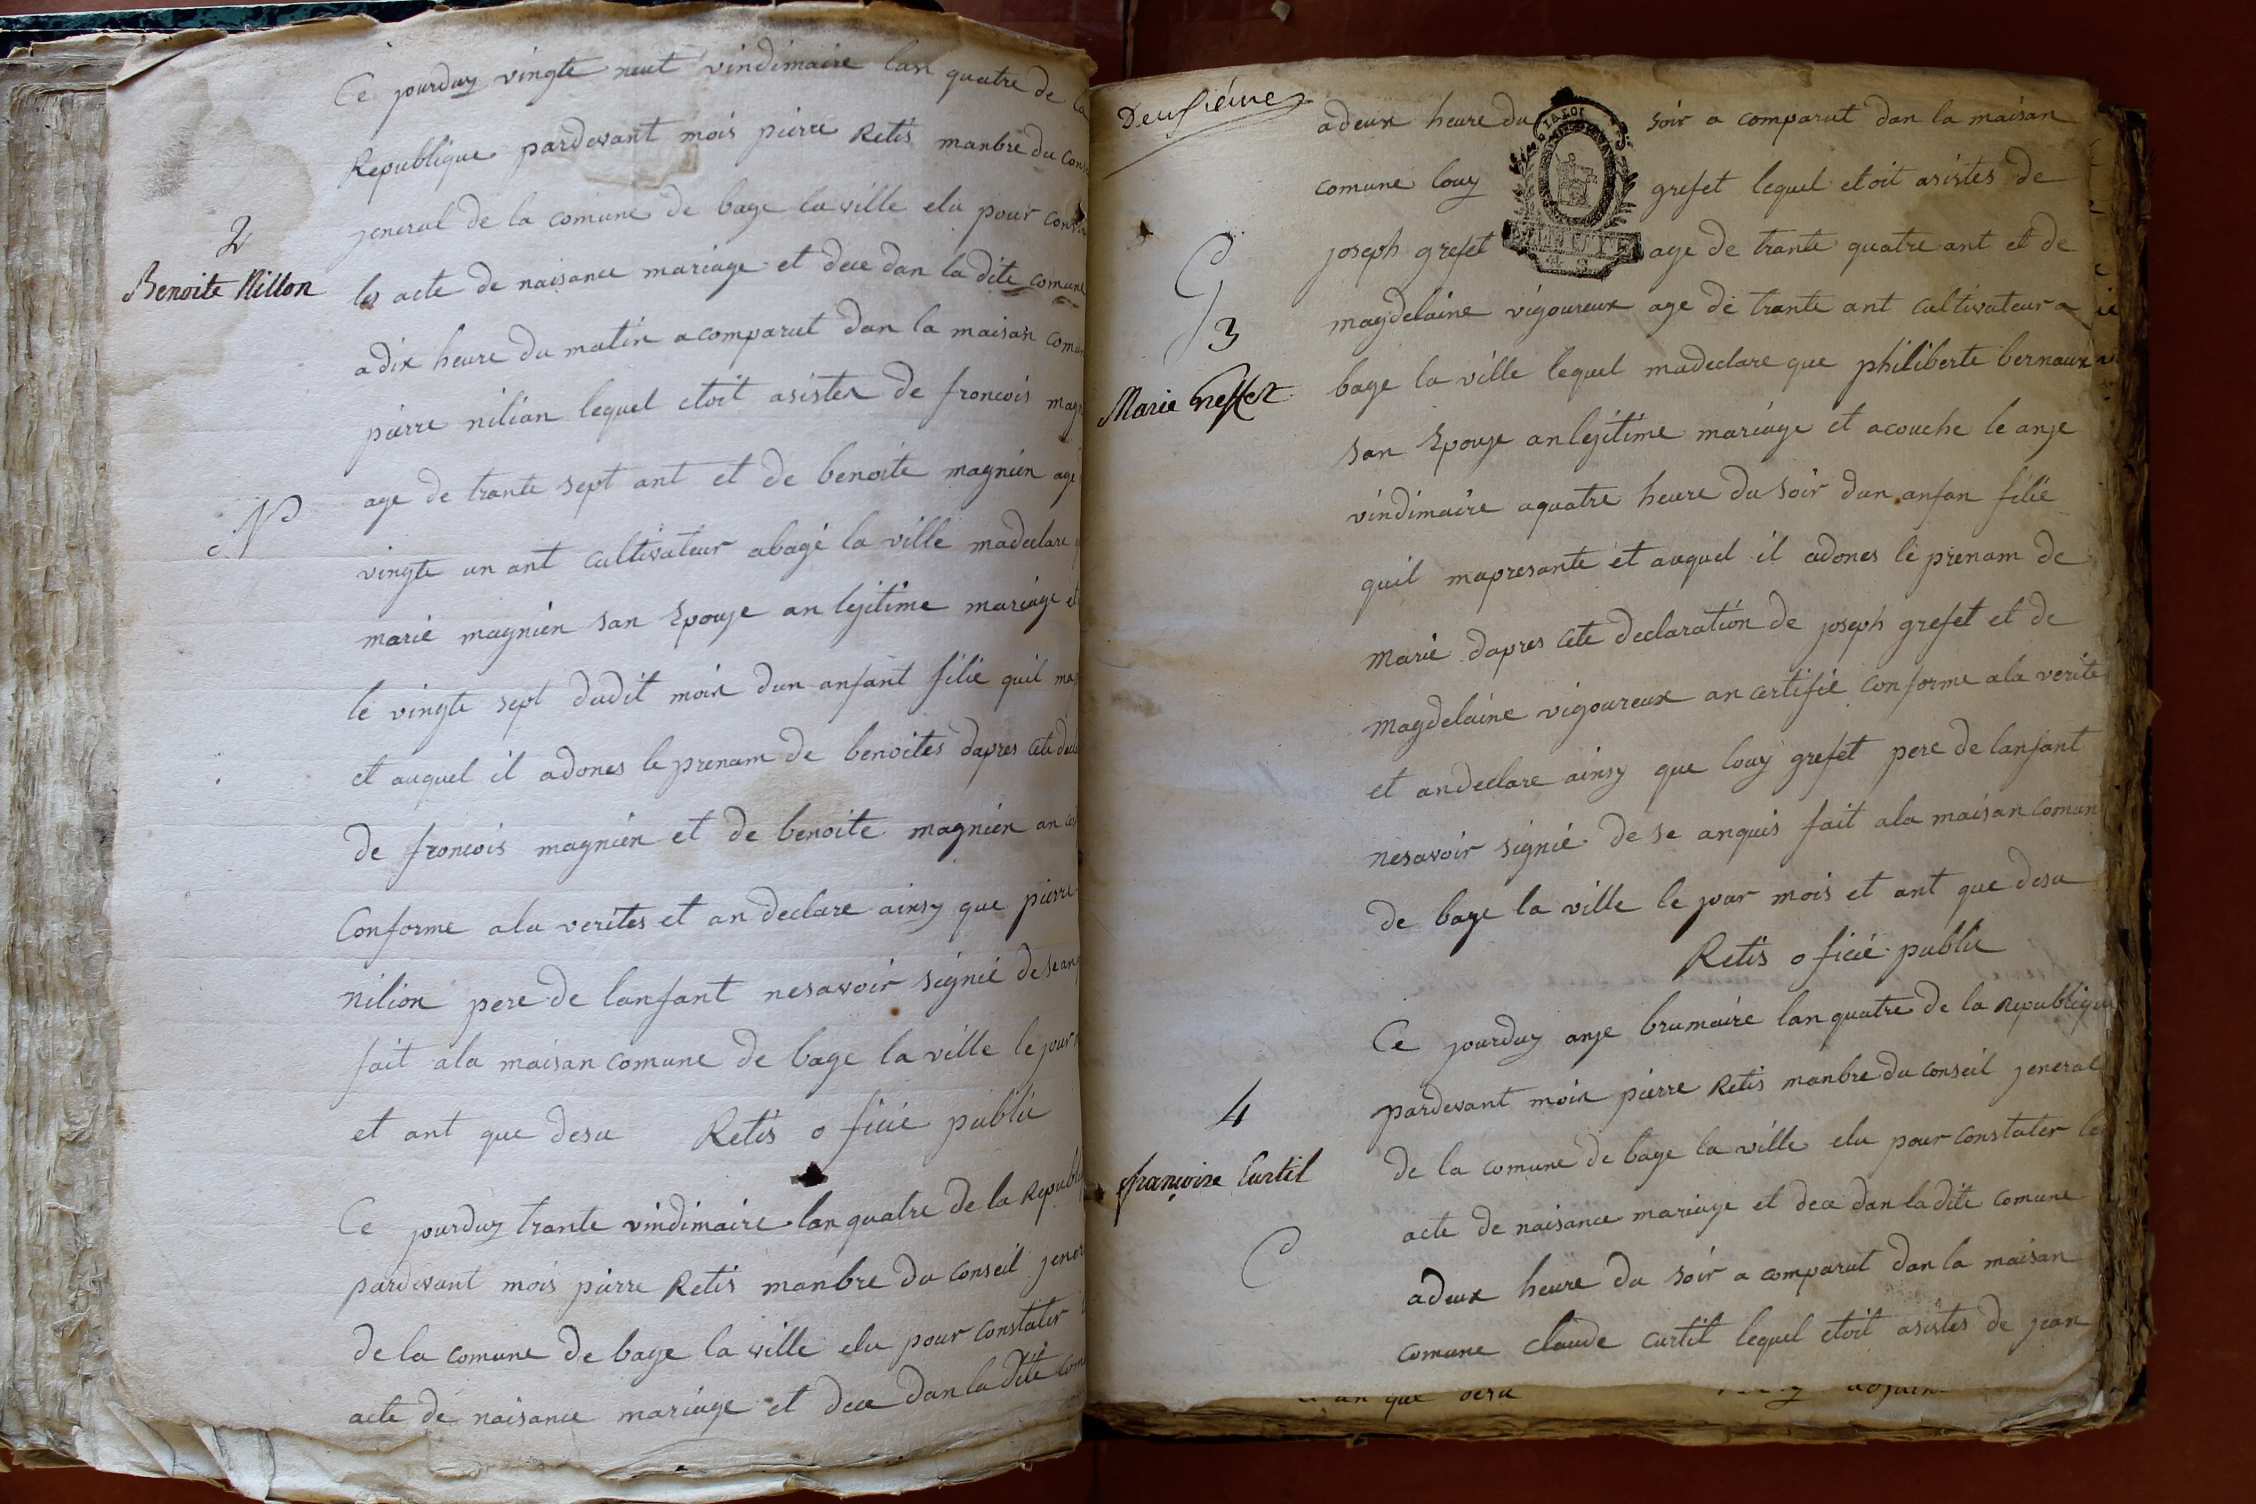 Ce jourduy vingte neut vindimaire lan quatre de la
Republique pardevant mois pierre Retis manbre du
jeneral de la comune de bage la ville elu pour
2
Benoite Nillon
les acte de naisance mariage et dece dan la dite comune
adix heure du matin acomparut dan la maisan
pierre nilian lequel etoit asister de froncois
age de trante sept ant et de benoite magnien age
N
vingte un ant cultivateur abage la ville madeclare
marie magnien san Epouse an lejitime mariage et
le vingte sept dudit mois dun anfant filie quil
et auquel il adones le prenam de benoites dapres cete
de froncois magnien et de benoite magnien an
Conforme ala verites et an declare ainsy que pierre
nilion pere de lanfant nesavoir signié de se
fait ala maisan comune de bage la ville le jour
et ant que desu Retis oficié publie
Ce jourduy trante vindimaire lan quatre de la
pardevant mois pierre Retis manbre du conseil
de la comune de bage la ville elu pour constater
acte de naisance mariage et dece dan la dite
Deusiéme
adeux heure du soir a comparut dan la maisan
comune louy grefet lequel etoit asistes de
joseph grefet age de trante quatre ant et de
G
3
Marie Greffet
magdelaine vigoureux age de trante ant cultivateur a
bage la ville lequel madeclare que philiberte bernaux
san Epouse anlejitime mariage et acouche le anje
vindimaire aquatre heure du soir dun anfan filie
quil mapresante et auquel il adones le prenam de
Marie dapres cete declaration de joseph grefet et de
magdelaine vigoureux an certifie conforme ala verite
et andeclare ainsy que louy grefet pere de lanfant
nesavoir signié de se anquis fait ala maisan comun
de bage la ville le jour mois et ant que desu
Retis oficié publie
Ce jourduy anje brumaire lan quatre de la Republique
pardevant moix pierre Retis manbre du conseil jeneral
4
françoise Curtil
C
de la comune de bage la ville elu pour constater les
acte de naisance mariage et dece dan ladite comune
adeux heure du soir a comparut dan la maisan
comune claude curtil lequel etoit asistes de jean
an que desu